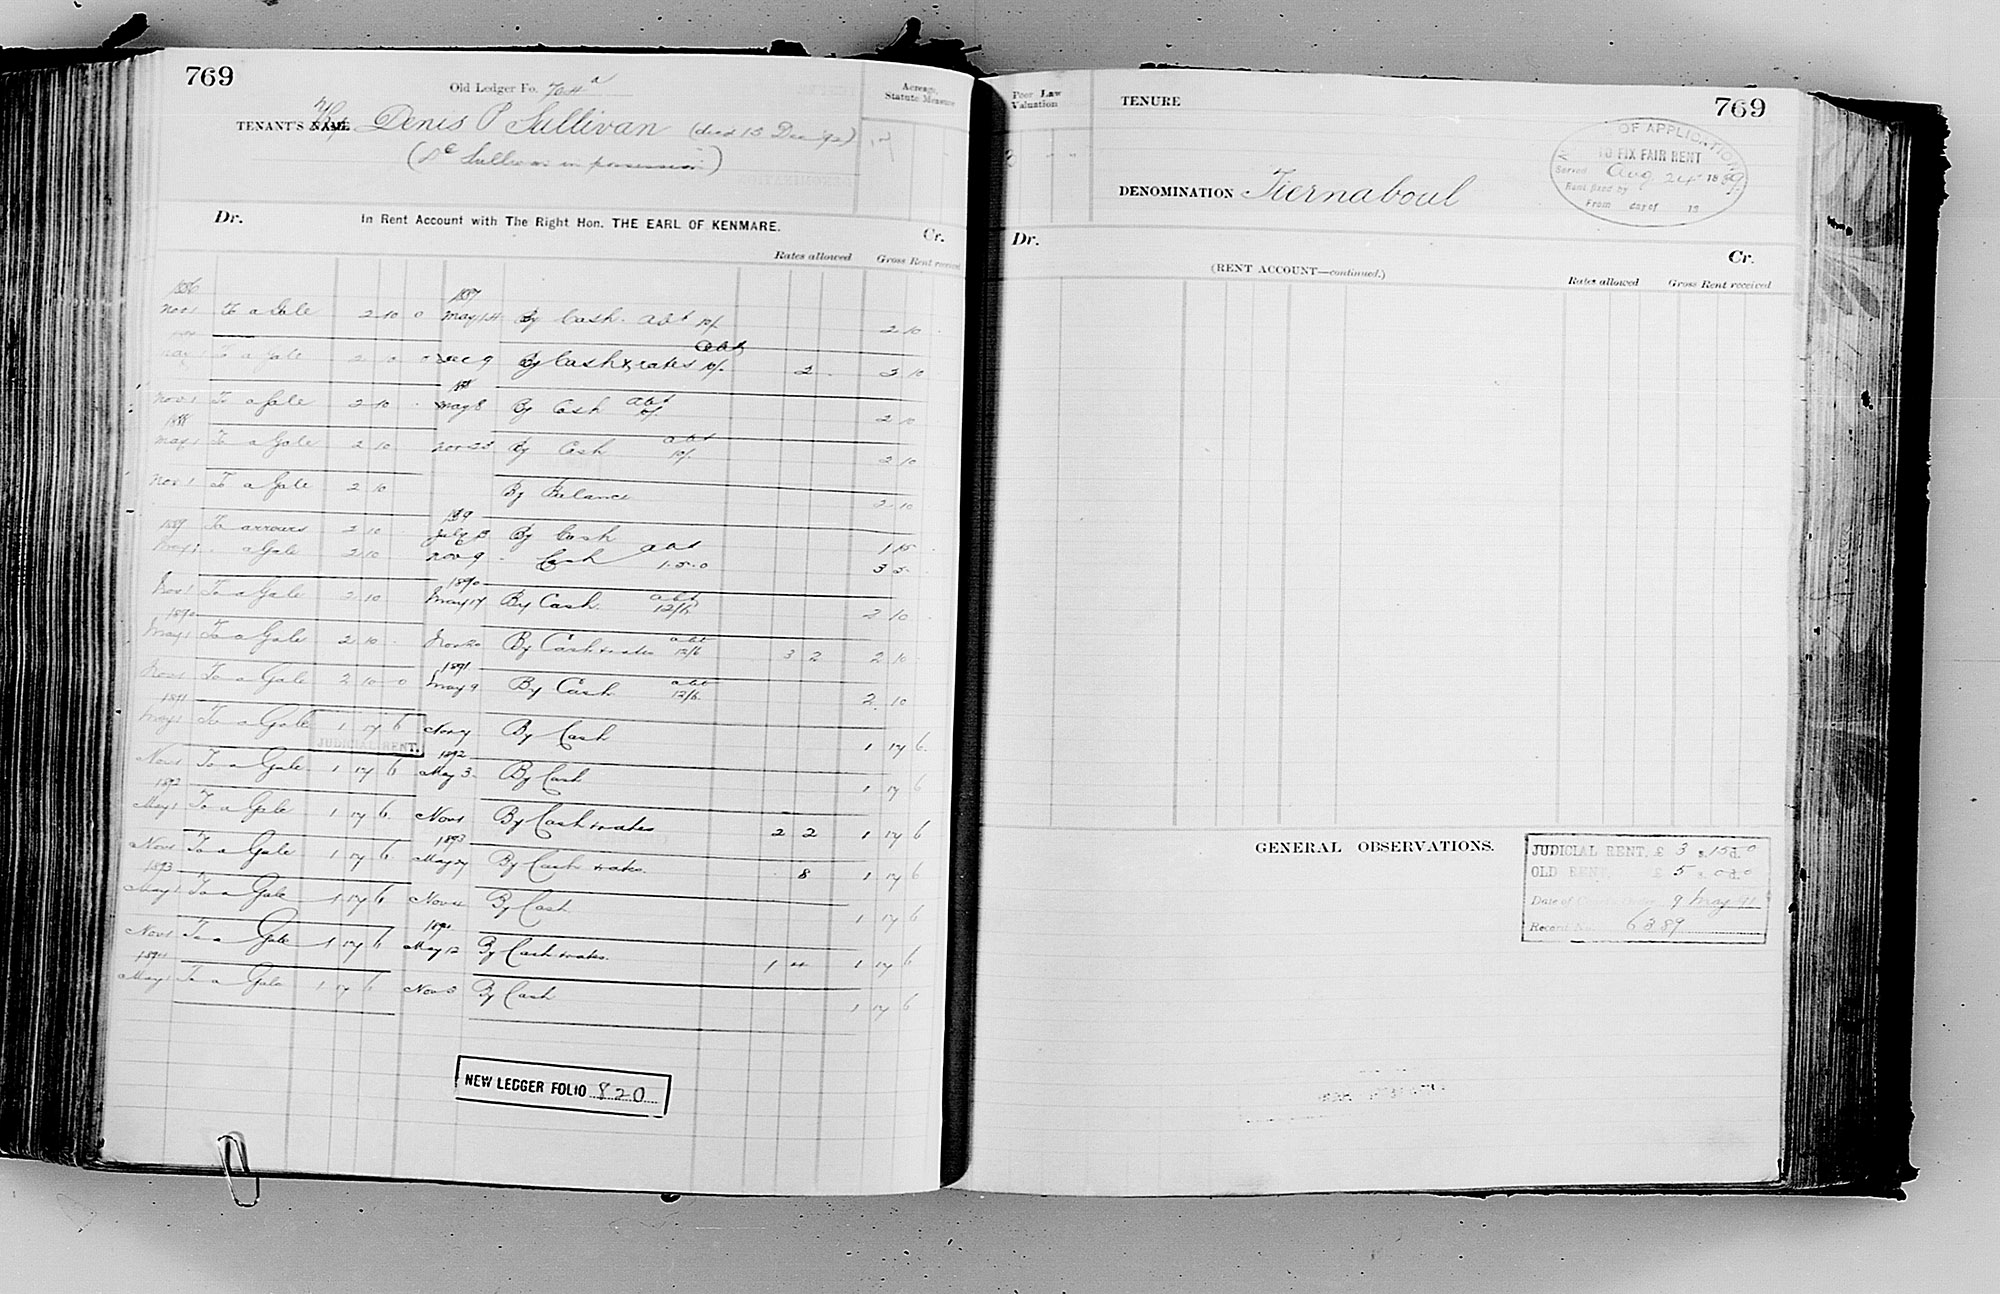 769
Old Ledger Fo.
TENANT'S NAME Denis P Sullivan (died 13 Dec '92)
(De Sullivan in possession)
Acreage, Statute Measure
Dr. In Rent Account with The Right Hon. THE EARL OF KENMARE. Cr.
Rates allowed Gross Rent received
1886 1887
Nov 1 To a Gale 2 10 0 May 14 By Cash abt 10/- 2 10
May 1 To a Gale 2 10 0 Dec 9 By Cash & rates abt 10/- 2 2 10
Nov 1 To a Gale 2 10 May 8 By Cash abt 2 10
1888
May 1 To a Gale 2 10 Nov 23 By Cash abt 10/- 2 10
Nov 1 To a Gale 2 10 By Balance 2 10
1889 To arrears 2 10 1889 July 13 By Cash 1 15
May 1 a Gale 2 10 Nov 9 Cash abt 1.5.0 3 5
1890
Nov 1 To a Gale 2 10 May 17 By Cash abt 12/6 2 10
1890
May 1 To a Gale 2 10 Nov 20 By Cash & rates abt 12/6 3 2 2 10
1891
Nov 1 To a Gale 2 10 0 May 9 By Cash abt 12/6 2 10
1891
May 1 To a Gale 1 17 6 Nov 7 By Cash 1 17 6
JUDICIAL RENT.
1892
Nov 1 To a Gale 1 17 6 May 3 By Cash 1 17 6
1892
May 1 To a Gale 1 17 6 Nov 1 By Cash & rates 2 2 1 17 6
1893
Nov 1 To a Gale 1 17 6 May 27 By Cash & rates 8 1 17 6
1893
May 1 To a Gale 1 17 6 Nov By Cash 1 17 6
Nov 1 To a Gale 1 17 6 May 12 By Cash & rates 1 4 1 17 6
1894
May 1 To a Gale 1 17 6 Nov 3 By Cash 1 17 6
NEW LEDGER FOLIO 820
Poor Law Valuation
TENURE
769
OF APPLICATION
TO FIX FAIR RENT
Served Aug 24 1889
Rent fixed by
From day of 18
DENOMINATION Tiernaboul
Dr. Cr.
(RENT ACCOUNT—continued.)
Rates allowed Gross Rent received
GENERAL OBSERVATIONS.
JUDICIAL RENT, £ 3 s. 15 d. 0
OLD RENT, £ 5 s. 0 d. 0
Date of 9 May 91
Record No. 6389